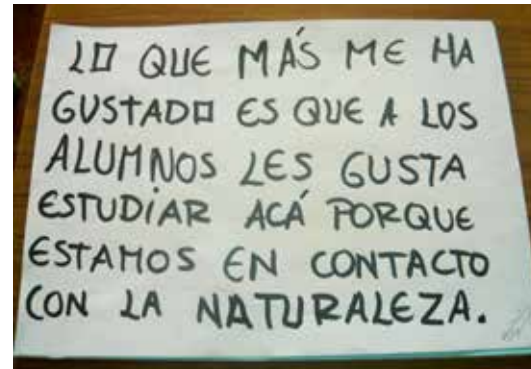 LO QUE MÁS ME HA
GUSTADO ES QUE A LOS
ALUMNOS LES GUSTA
ESTUDIAR ACÁ PORQUE
ESTAMOS EN CONTACTO
CON LA NATURALEZA.